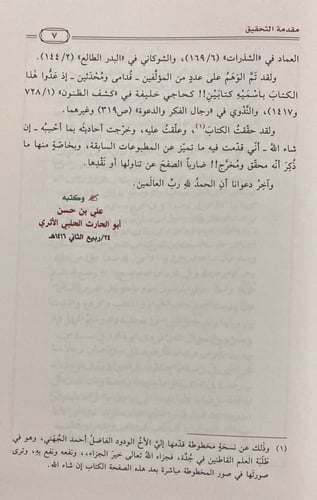 مقدمة التحقيق
٧
العماد في «الشذرات» (١٦٩/٦)، والشوكاني في «البدر الطالع» (١٤٤/٢).
ولقد تَمَّ الوَهَمُ على عددٍ من المؤلِّفين ـ قُدامى ومُحْدَثين ـ إذ عَدُّوا هذا
الكتابَ باسْمَيْهِ كتابَيْنِ!! كحاجي خليفة في «كشف الظنون» (٧٢٨/١
و١٤١٧)، والنَّدْوي في «رجال الفكر والدعوة» (ص٣١٩) وغيرهما.
ولقد حقّقتُ الكتابَ(١)، وعلّقتُ عليه، وخرّجت أحاديثَه بما أحسِبُهُ ـ إن
شاء اللهُ ـ أنّي قدّمت فيه ما تميّز عن المطبوعات السابقة، وبخاصّةٍ منها ما
ذُكِرَ أنّه محقّق ومُخرَّج!! ضارباً الصفحَ عن تناولها أو نَقْدِها.
وآخِرُ دعوانا أنِ الحمدُ للهِ ربِّ العالَمين.
وكتبه
علي بن حسن
أبو الحارث الحلبي الأثري
٢٤/ربيع الثاني ١٤١٦هـ
(١) وذلك عن نسخةٍ مخطوطة قدّمها إليَّ الأخُ الودود الفاضلُ أحمد الجُهَني، وهو في
طَلَبَة العلم القاطنين في جُدَّة، فجزاه اللهُ تعالى خيرَ الجزاء،،، ونفعه ونفع بهِ، وترى
صورتَها في صور المخطوطة مباشرة بعد هذه الصفحة الكتاب إن شاء الله.